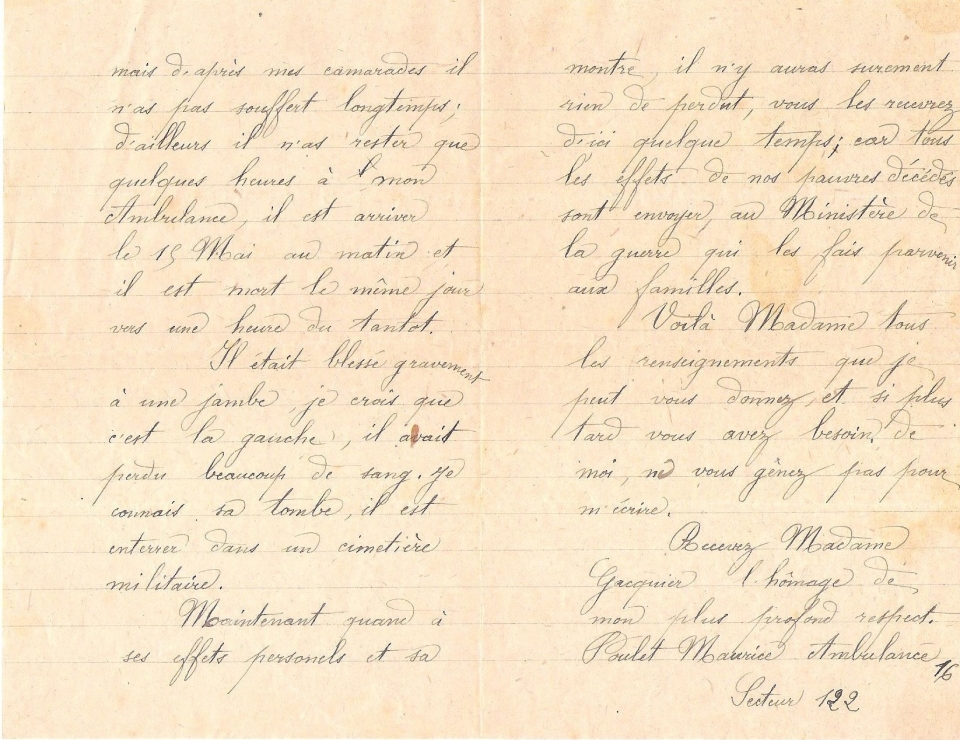 mais d'après mes camarades il
n'as pas souffert longtemps;
d'ailleurs il n'as rester que
quelques heures à mon
Ambulance, il est arriver
le 15 Mai au matin et
il est mort le même jour
vers une heure du tantot.
Il était blessé gravement
à une jambe, je crois que
c'est la gauche, il avait
perdu beaucoup de sang. Je
connais sa tombe, il est
enterrer dans un cimetière
militaire.
Maintenant quand à
ses effets personels et sa
montre, il n'y auras surement
rien de perdut, vous les reuvrez
d'ici quelque temps; car tous
les effets de nos pauvres décédés
sont envoyer, au Ministère de
la guerre qui les fais parvenir
aux familles.
Voilà Madame tous
les renseignements que je
peut vous donnez, et si plus
tard vous avez besoin de
moi, ne vous gênez pas pour
m'écrire.
Recevez Madame
Gacquier l'hômage de
mon plus profond respect.
Poulet Maurice Ambulance 16
Secteur 122